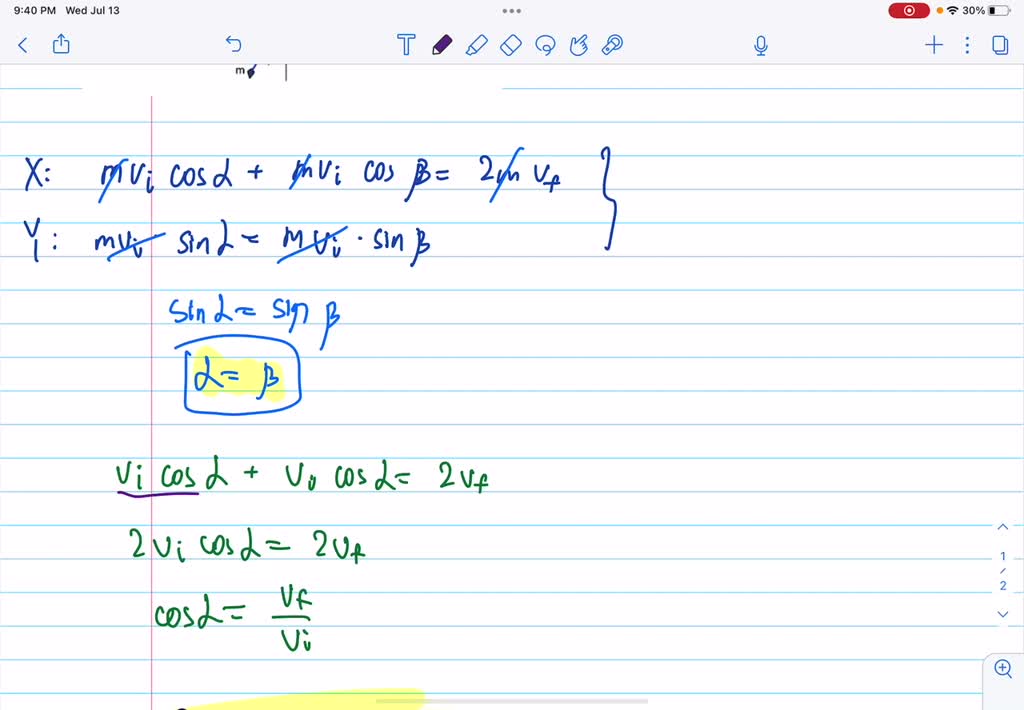 9:40 PM Wed Jul 13
30%
m
X: mvi cos α + mvi cos β = 2m vf
Y: mvi sin α = mvi · sin β
sin α = sin β
α = β
vi cos α + vi cos α = 2vf
2vi cos α = 2vf
cos α = vf / vi
1
/
2